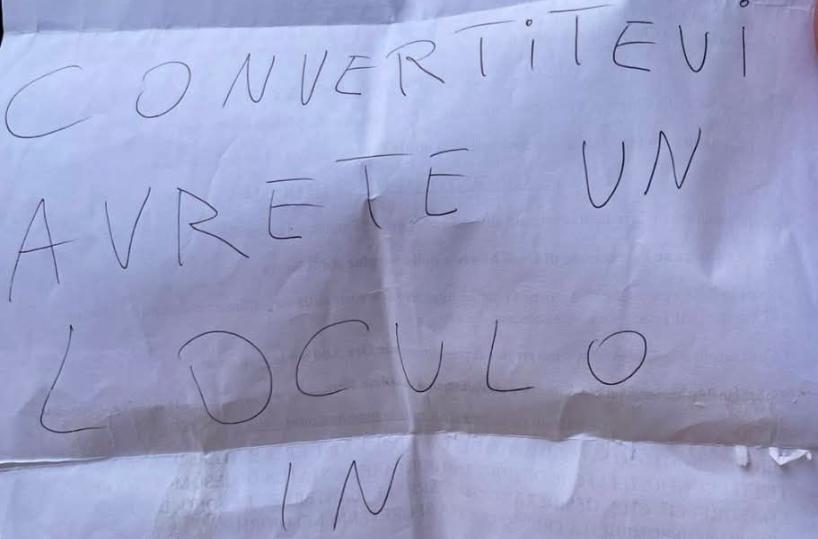 CONVERTiTEVi
AVRETE UN
LOCULO
IN